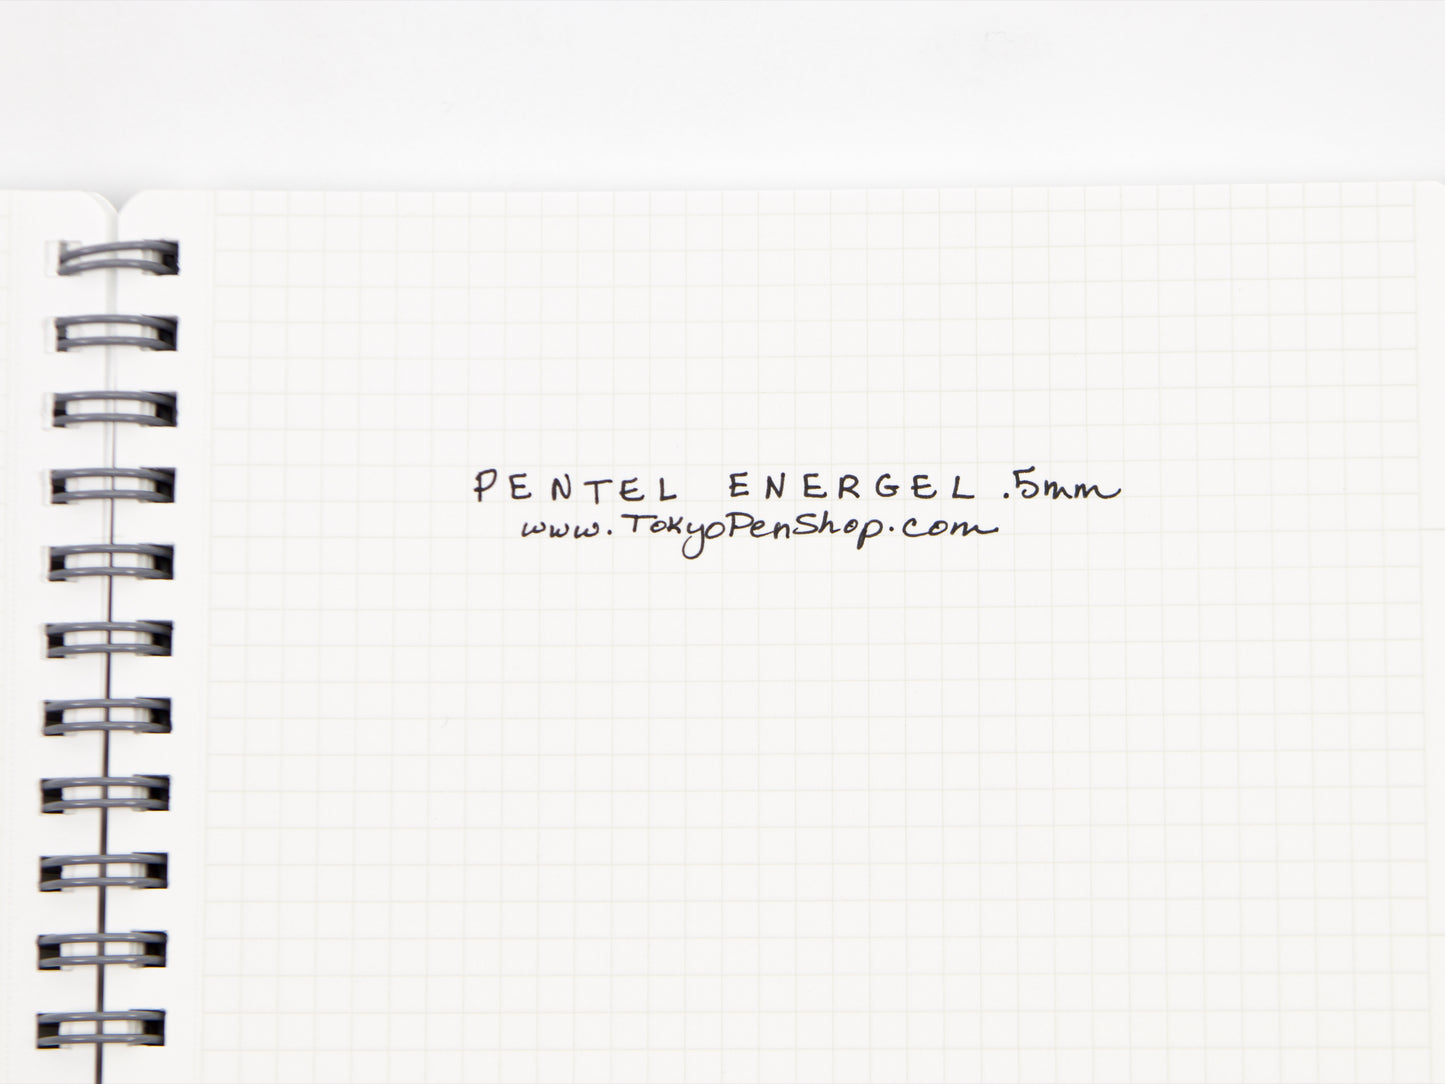 PENTEL ENERGEL .5mm
www.TokyoPenShop.com